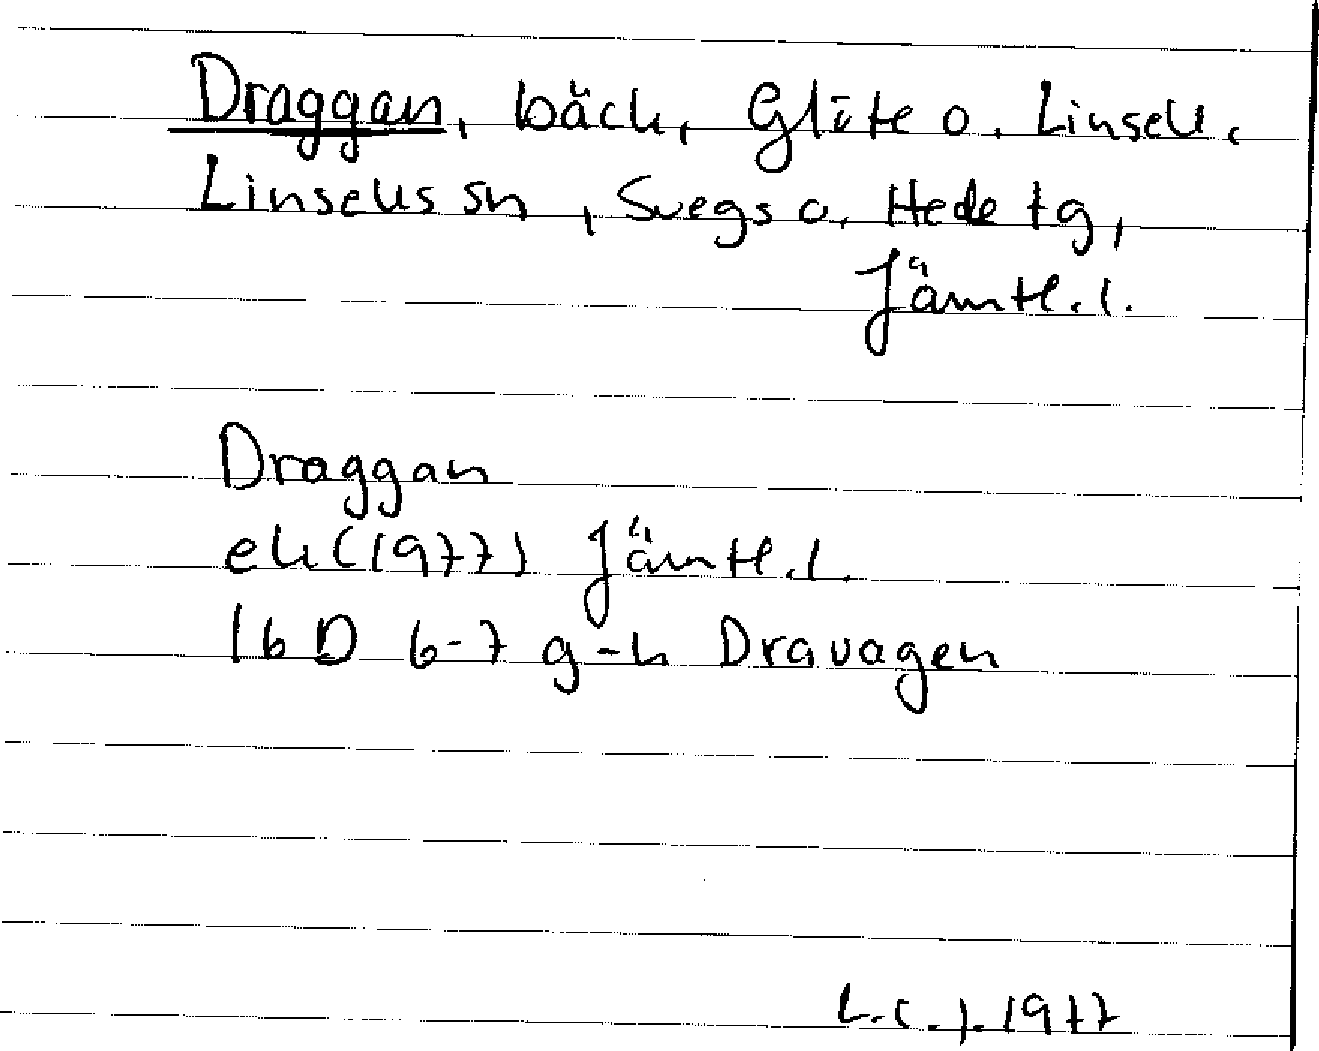 Draggan, bäck, Glöte o. Linsell,
Linsells sn, Svegs o. Hede tg,
Jämtl. l.
Draggan
ek (1977) Jämtl. l.
16 D 6-7 g-h Dravagen
L.C.J. 1977